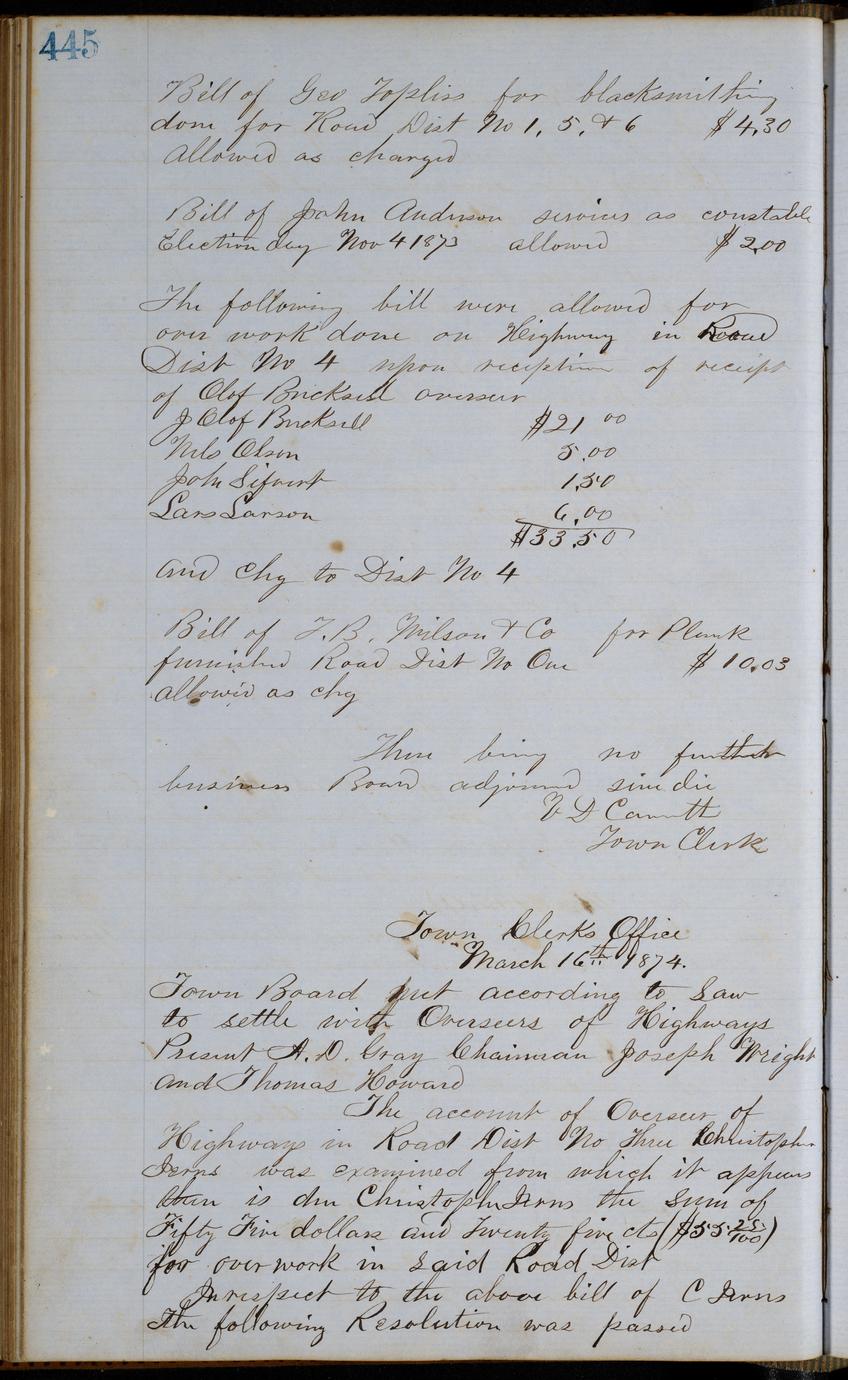 445
Bill of Geo Topliss for blacksmithing
done for Road Dist No 1, 5, & 6 $4,30
allowed as charged
Bill of John Anderson services as constable
Election day Nov 4 1873 allowed $2.00
The following bill were allowed for
over work done on Highway in Road
Dist No 4 upon reception of receipt
of Olof Bricksell overseer
J Olof Bricksell $21 00
Nils Olson 5.00
John Sifvert 1,50
Lars Larson 6,00
$33,50
and chg to Dist No 4
Bill of T. B. Wilson & Co for Plank
furnished Road Dist No One $10.03
allowed as chg
There being no further
business Board adjourned sine die
V D Carruth
Town Clerk
Town Clerks Office
March 16th 1874.
Town Board met according to Law
to settle with Overseers of Highways
Present A. D. Gray Chairman Joseph Wright
and Thomas Howard
The account of Overseer of
Highways in Road Dist No Three Christopher
was examined from which it appears
there is due Christopher the sum of
Fifty Five dollars and Twenty five cts ($55 25/100)
for overwork in Said Road Dist
In respect to the above bill of C
The following Resolution was passed